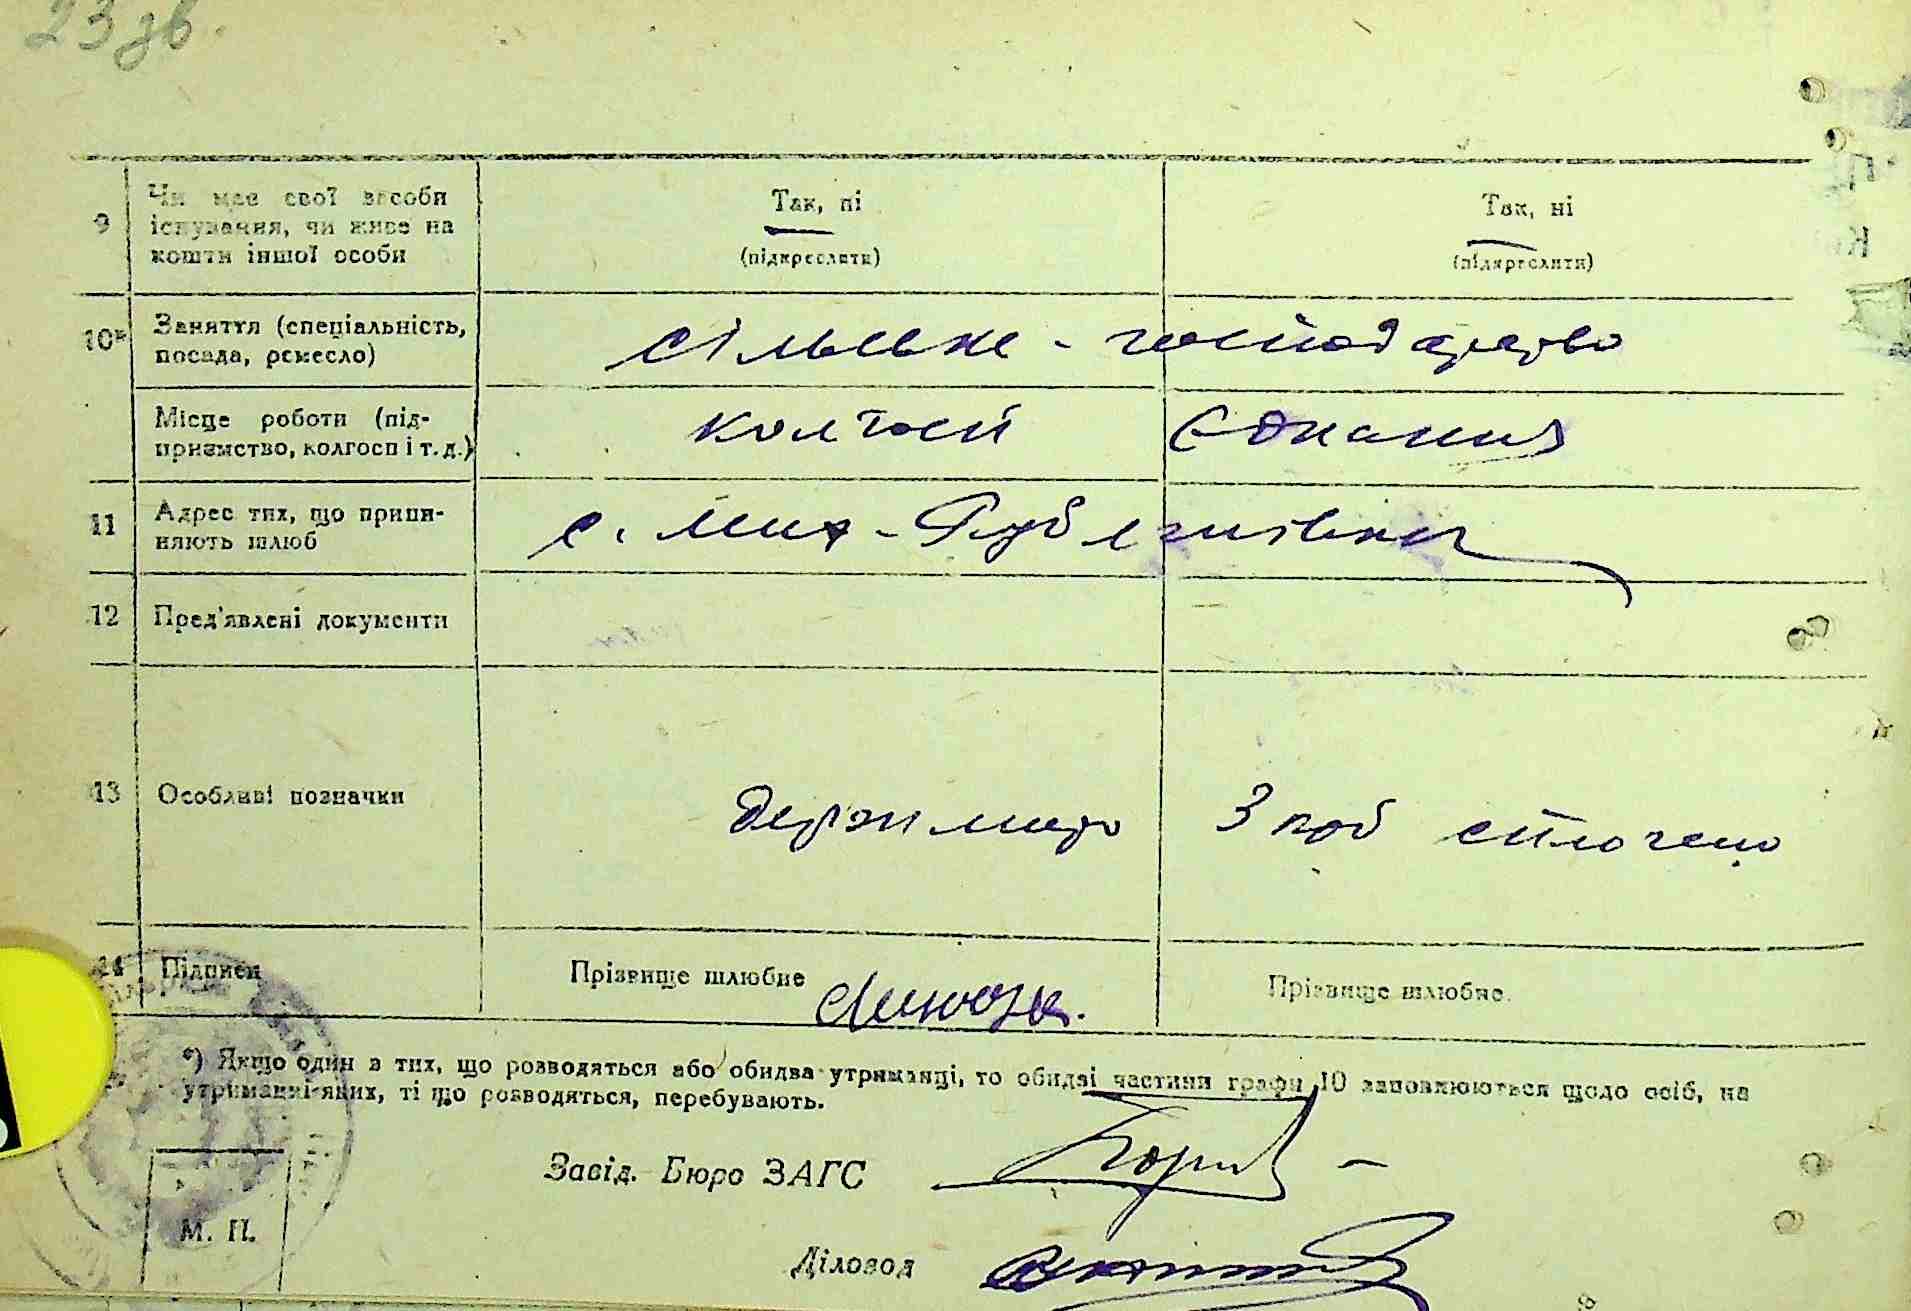 23 зв.
9 Чи має свої засоби існування, чи живе на кошти іншої особи
Так, ні
(підкреслити)
Так, ні
(підкреслити)
10* Заняття (спеціальність, посада, ремесло)
сільське-господарство
Місце роботи (підприємство, колгосп і т. д.)
колгосп Єднання
11 Адрес тих, що припиняють шлюб
с. Мих-Рублинівка
12 Пред'явлені документи
13 Особливі позначки
Держ мито 3 крб сплочено
14 Підписи
Прізвище шлюбне
Прізвище шлюбне.
*) Якщо один з тих, що розводяться або обидва утриманці, то обидві частини графи 10 заповнюються щодо осіб, на
утриманні яких, ті що розводяться, перебувають.
Завід. Бюро ЗАГС
М. П.
Діловод